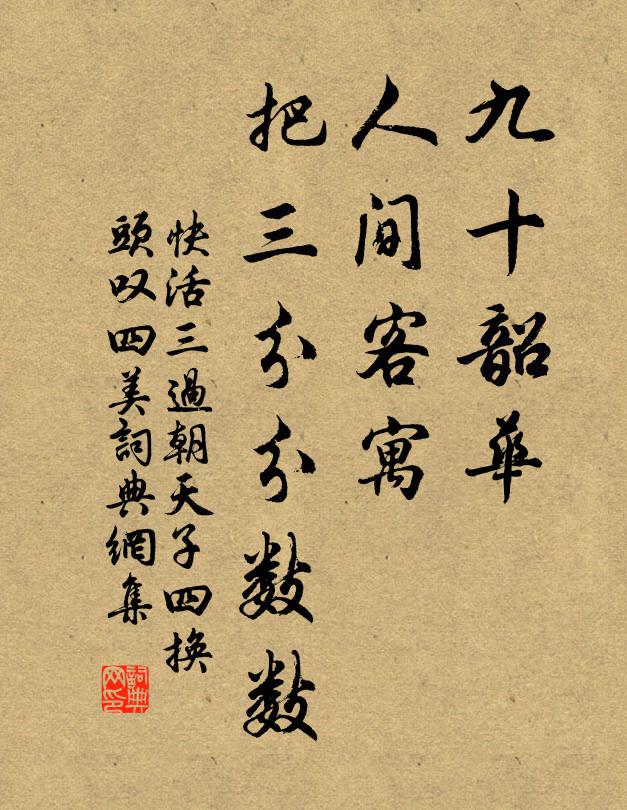 九十韶華
人間客寓
把三分分數數
快活三過朝天子四換
頭叹四美詞典網集
詞典
网印